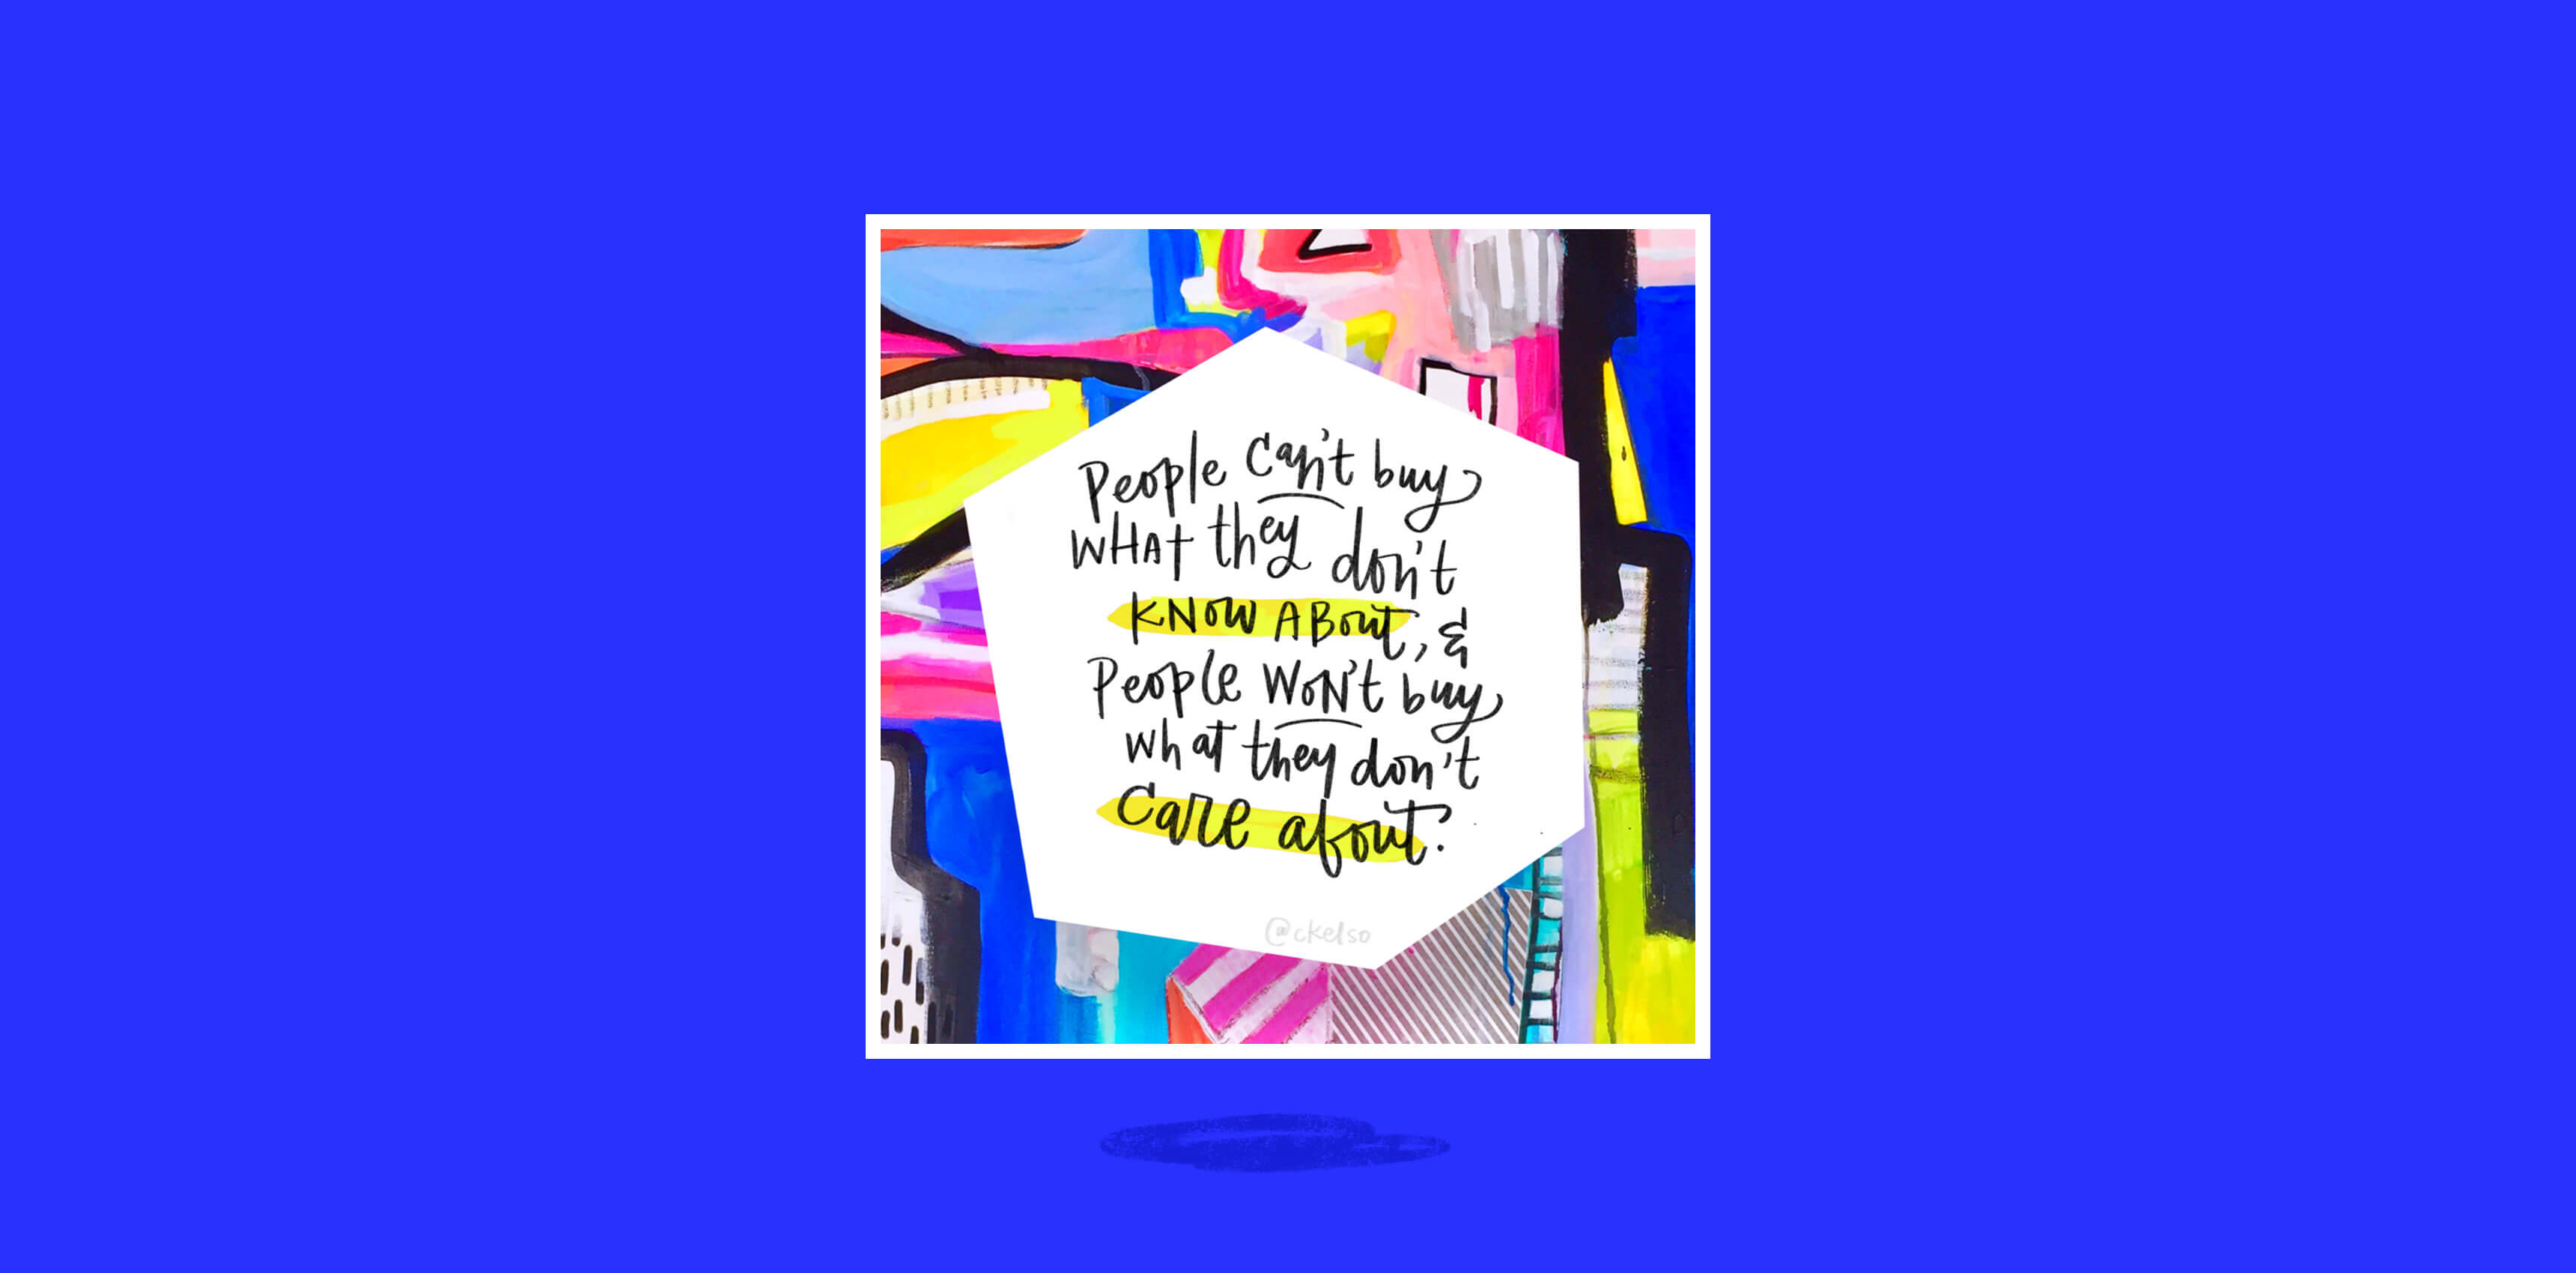 People can't buy
WHAT they don't
KNOW ABOUT, &
People WON'T buy
what they don't
care about.
@ckelso